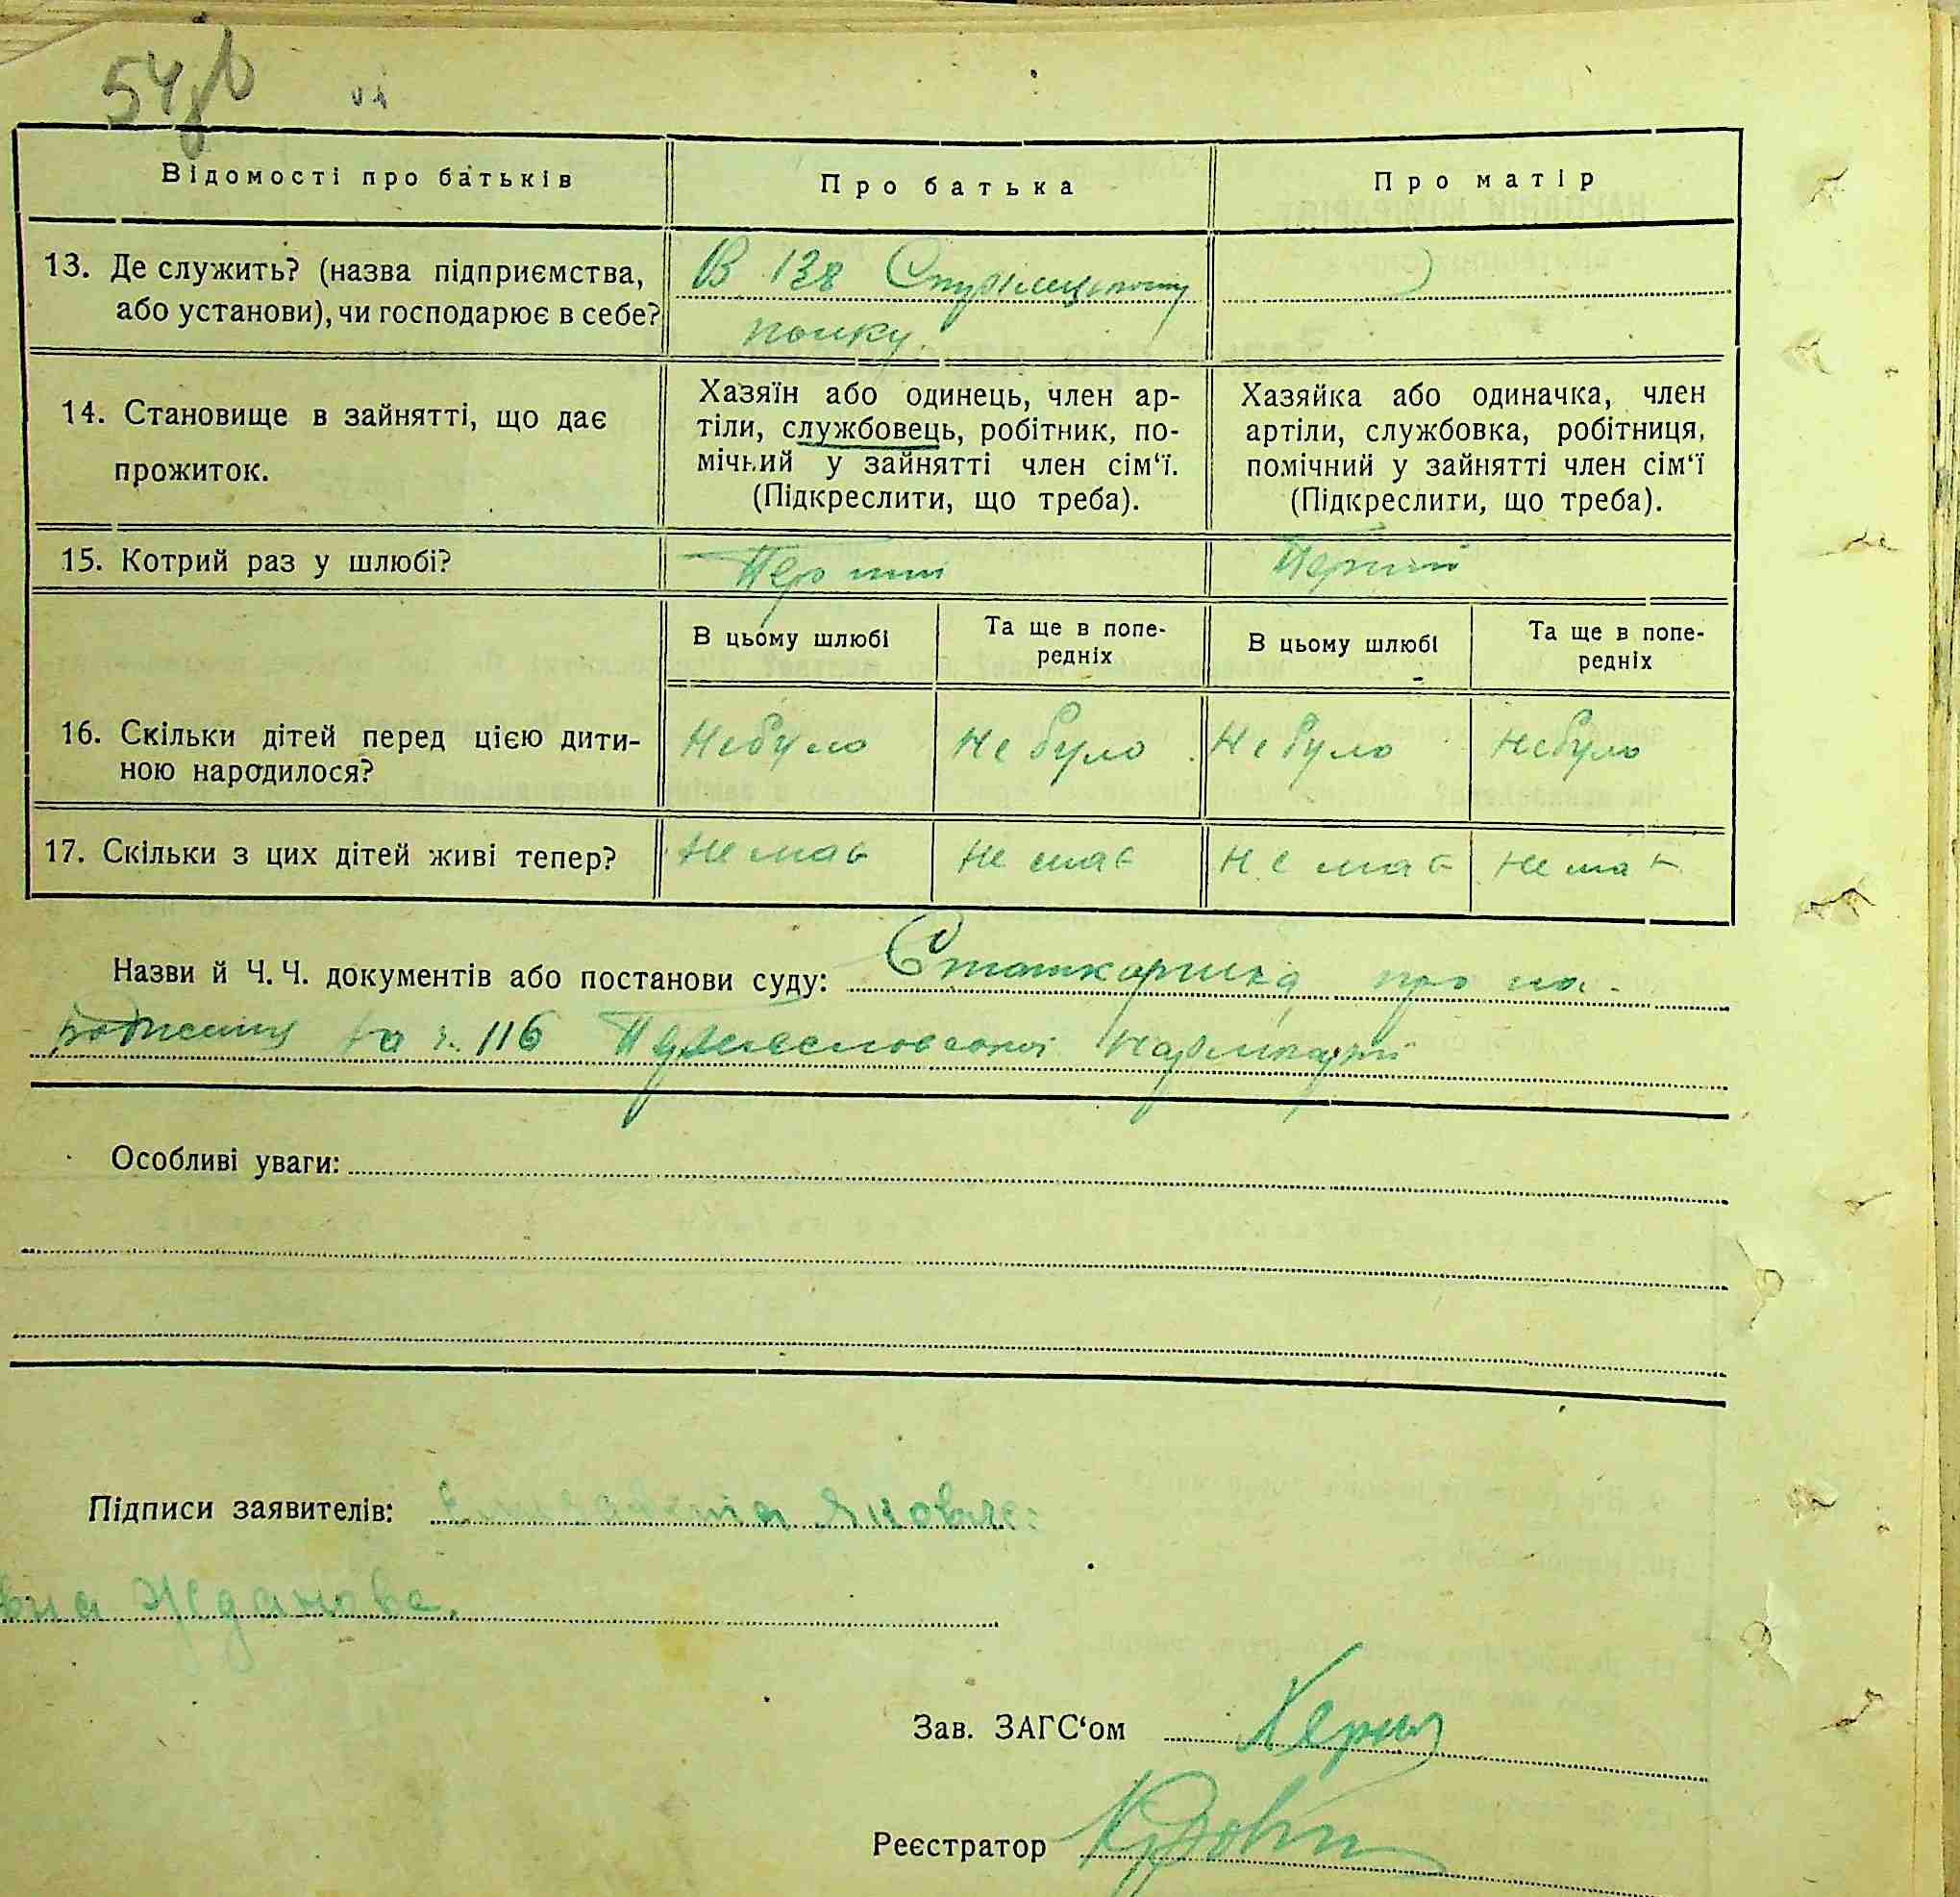 54
Відомості про батьків
Про батька
Про матір
13. Де служить? (назва підприємства,
або установи), чи господарює в себе?
В 138 Стрілецькому
полку.
14. Становище в зайнятті, що дає
прожиток.
Хазяїн або одинець, член ар-
тіли, службовець, робітник, по-
мічний у зайнятті член сім‘ї.
(Підкреслити, що треба).
Хазяйка або одиначка, член
артіли, службовка, робітниця,
помічний у зайнятті член сім‘ї
(Підкреслити, що треба).
15. Котрий раз у шлюбі?
Перший
Перший
В цьому шлюбі
Та ще в попе-
редніх
В цьому шлюбі
Та ще в попе-
редніх
16. Скільки дітей перед цією дити-
ною народилося?
Небуло
Не було
Не було
Небуло
17. Скільки з цих дітей живі тепер?
Не має
Не має
Не має
Не має
Назви й Ч. Ч. документів або постанови суду:
про на-
родження за ч. 116
Особливі уваги:
Підписи заявителів: Елизавета Яковле:
вна Жданова.
Зав. ЗАГС‘ом
Реєстратор